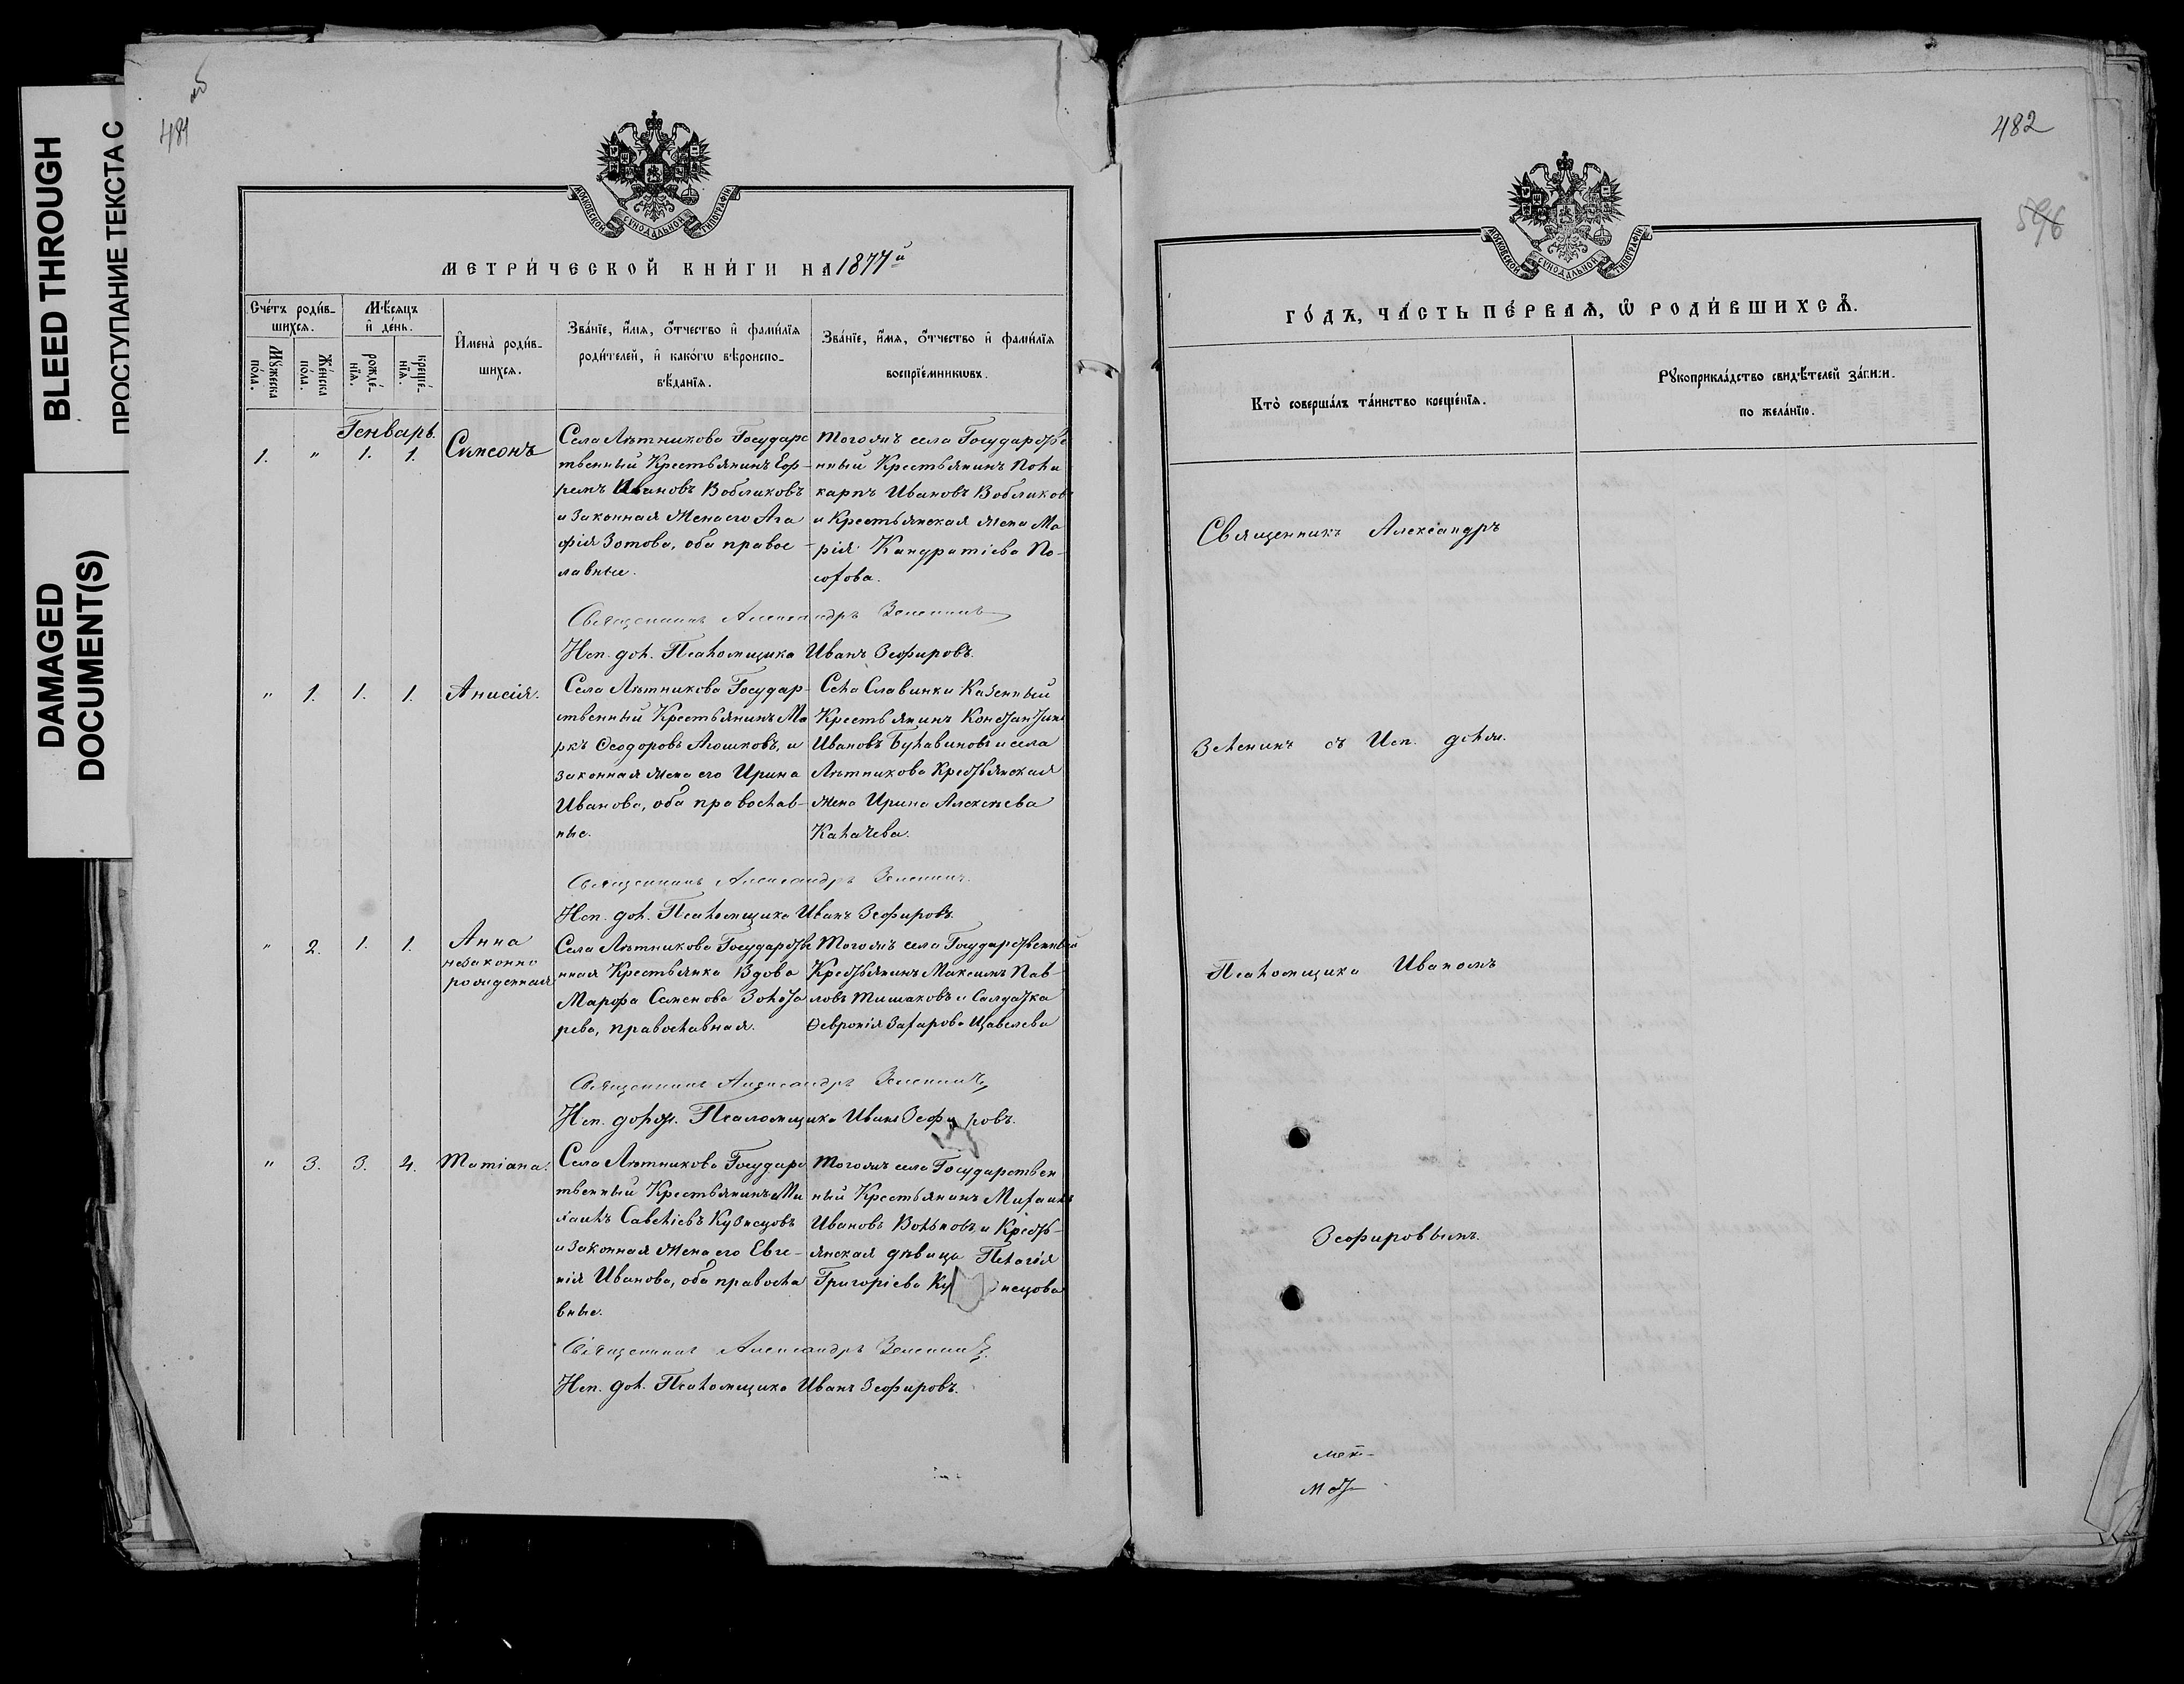 BLEED THROUGH
ПРОСТУПАНИЕ ТЕКСТА С
DAMAGED
DOCUMENT(S)
481
об
МОСКОВСКОЙ СѴНОДАЛЬНОЙ ТИПОГРАФІИ
МЕТРИ́ЧЕСКОЙ КНИ́ГИ НА 1877й
Сче́тъ роди́в-
шихся.
Мѣ́сяцъ
и҆ де́нь.
Му́жеска
по́ла.
Же́нска
по́ла.
рожде́-
нїя.
креще́-
нїя.
И҆мена̀ роди́в-
шихся.
Зва́нїе, и҆́мя, ѻ҆́тчество и҆ фамі́лїя
роди́телей, и҆ како́гѡ вѣроиспо-
вѣ́данїя.
Зва́нїе, и҆́мя, ѻ҆́тчество и҆ фамі́лїя
воспрїе́мникѡвъ.
Генварь.
1. " 1. 1. Сѵмеонъ
Села Лѣтникова Государс
твенный Крестьянинъ Еф-
ремъ Ивановъ Вобликовъ
и Законная Жена его Ага
фія Зотова, оба правос
лавные.
Тогожъ села Государстве
нный Крестьянинъ Поли
карпъ Ивановъ Вобликовъ
и Крестьянская жена Ма
рія Кандратіева По-
хотова.
Священникъ Александръ Зеленинъ
Исп. дол. Псаломщика Иванъ Зефировъ.
" 1. 1. 1. Анисія.
Села Лѣтникова Государ-
ственный Крестьянинъ Ма
ркъ Ѳеодоровъ Агошковъ, и
законная жена его Ирина
Иванова, оба православ-
ные.
Села Славинки Казенный
Крестьянинъ Константинъ
Ивановъ Булавиновъ и села
Лѣтникова Крестьянская
жена Ирина Алексѣева
Калачева.
Священникъ Александръ Зеленинъ.
Исп. дол. Псаломщика Иванъ Зефировъ.
" 2. 1. 1. Анна
незаконно
рожденная
Села Лѣтникова Государстве
нная Крестьянка Вдова
Марфа Семенова Золота
рева, православная.
Тогожъ села Государственный
Крестьянинъ Максимъ Пав-
ловъ Тишаковъ и Салдатка
Ѳевронія Захарова Щавелева
Священникъ Александръ Зеленинъ
Исп. долж. Псаломщика Иванъ Зефировъ.
" 3. 3. 4. Татіана.
Села Лѣтникова Государс
твенный Крестьянинъ Ми
хаилъ Савеліевъ Кузнецовъ
и Законная Жена его Евге-
нія Иванова, оба правосла
вные.
Тогожъ села Государствен
ный Крестьянинъ Михаилъ
Ивановъ Вольновъ, и Кресть-
янская дѣвица Пелагія
Григоріева Кузнецова
Священникъ Александръ Зеленинъ.
Исп. дол. Псаломщика Иванъ Зефировъ.
482
596
МОСКОВСКОЙ СѴНОДАЛЬНОЙ ТИПОГРАФІИ
ГО́ДЪ, ЧА́СТЬ ПЕ́РВАЯ, Ѡ҆ РОДИ́ВШИХСЯ.
Кто̀ соверша́лъ та́инство креще́нїя.
Рукоприкла́дство свидѣ́телей за́писи
по жела́нїю.
Священникъ Александръ
Зеленинъ съ Исп. долж.
Псаломщика Иваномъ
Зефировымъ.